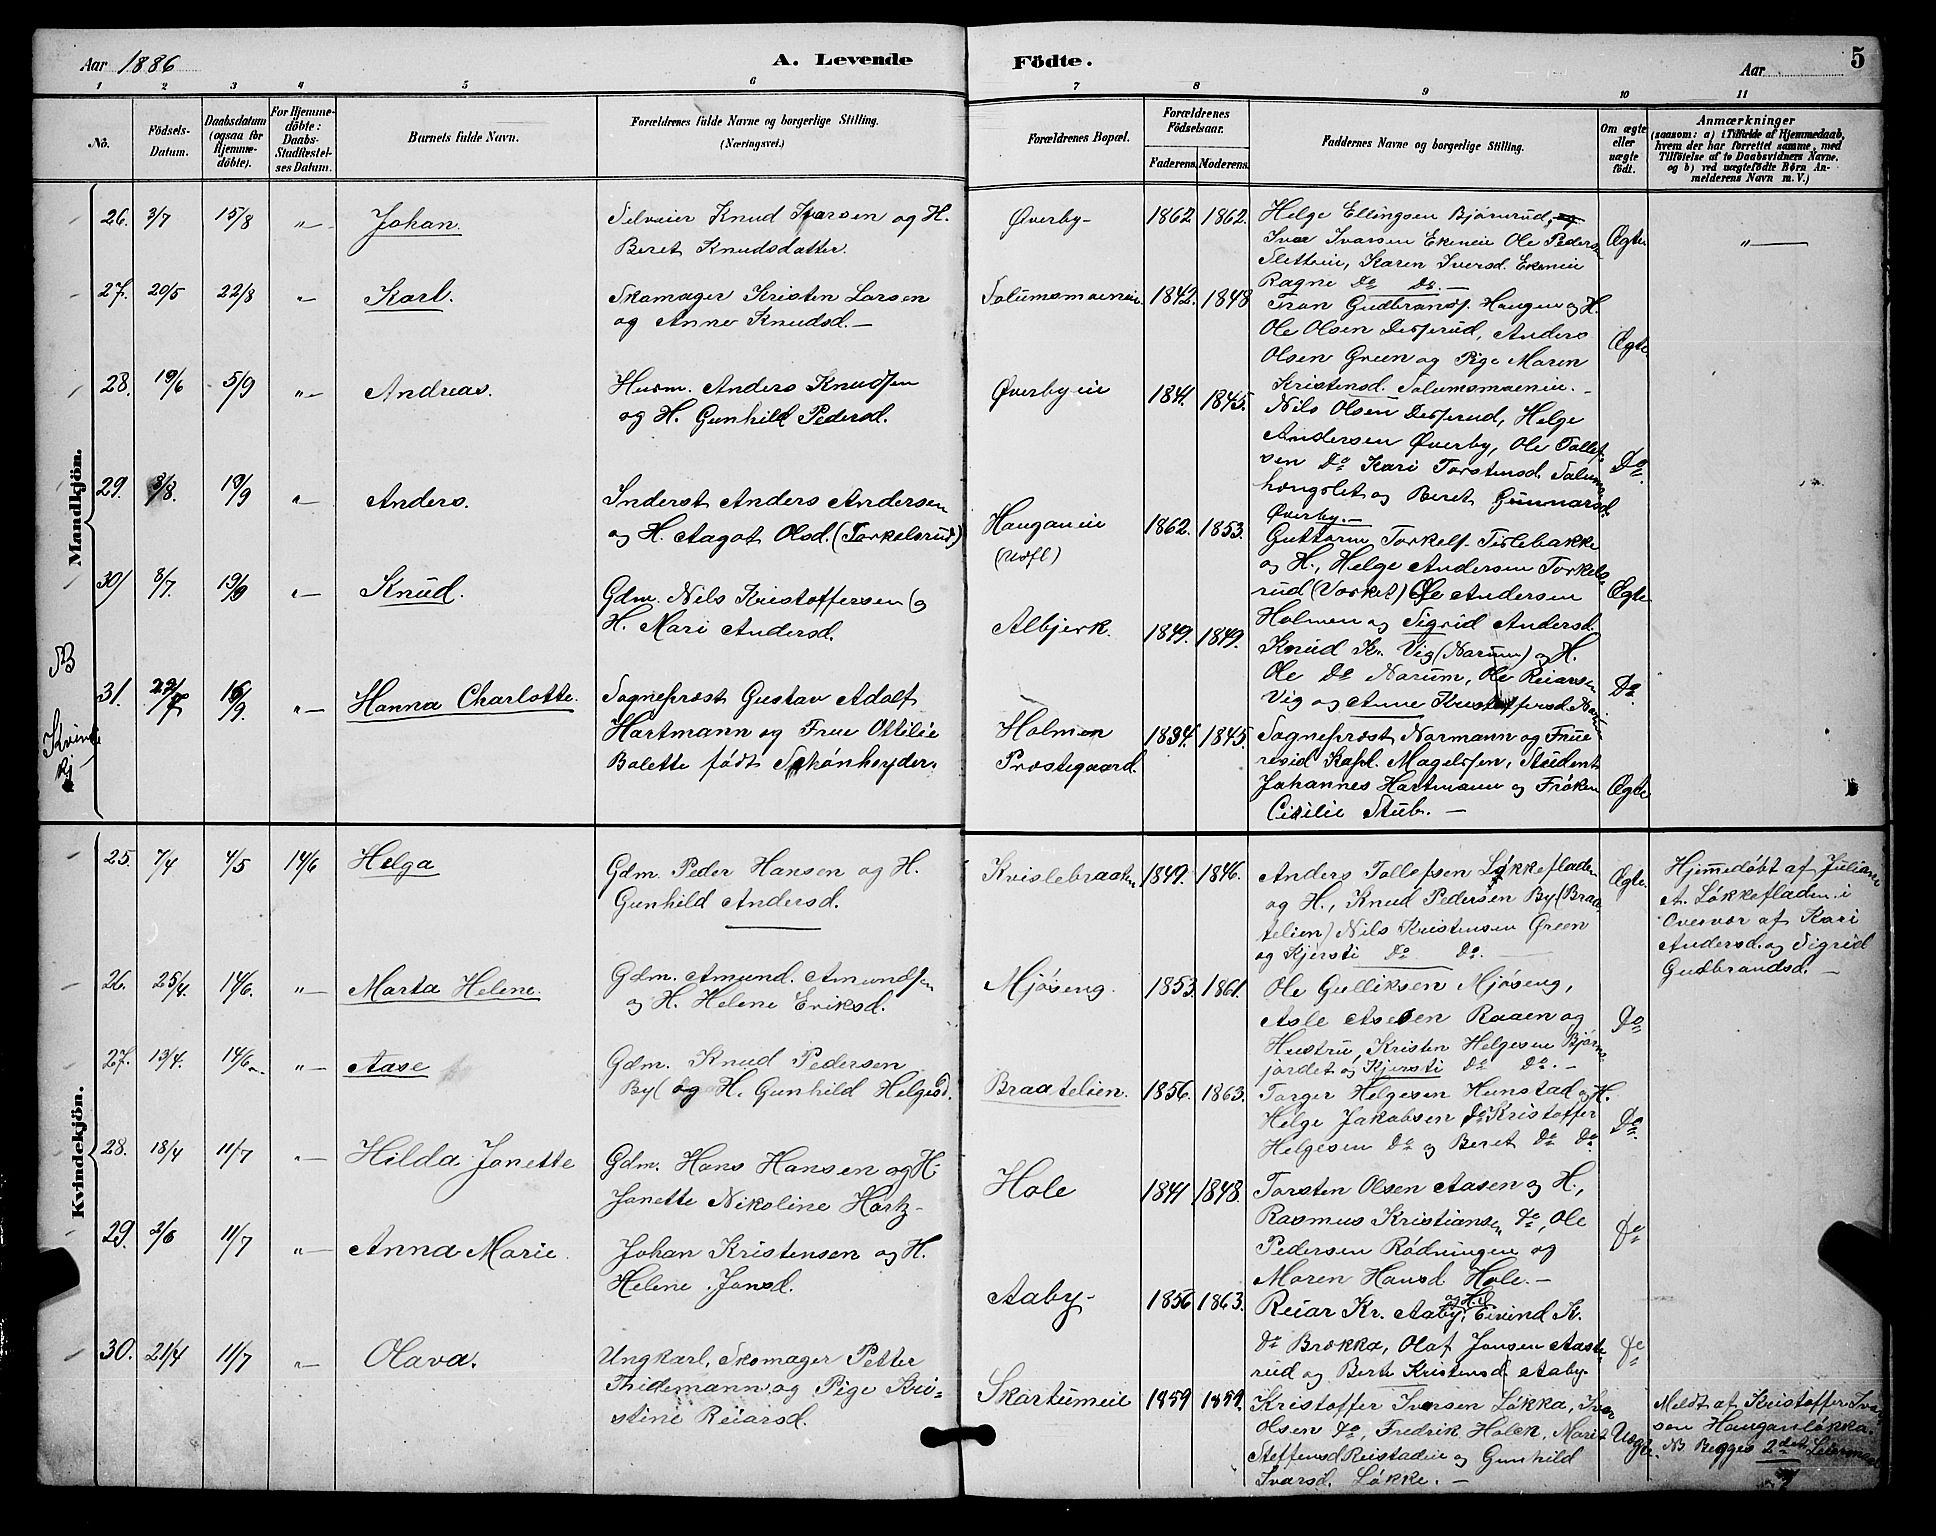 Aar 1886
A. Levende
Födte.
Aar
5
1 2 3 4 5 6 7 8 9 10 11
No.
Födsels-
Datum.
Daabsdatum
(ogsaa for
Hjemme-
döbte).
For Hjemme-
döbte:
Daabs-
Stadfæstel-
ses Datum.
Barnets fulde Navn.
Forældrenes fulde Navne og borgerlige Stilling.
(Næringsvei.)
Forældrenes Bopæl.
Forældrenes
Födselsaar.
Faderens. Moderens.
Faddernes Navne og borgerlige Stilling.
Om ægte
eller
uægte
födt.
Anmærkninger
(saasom: a) i Tilfælde af Hjemmedaab,
hvem der har forrettet samme, med
Tilföielse af to Daabsvidners Navne,
og b) ved uægtefödte Börn An-
melderens Navn m. V.)
Mandkjön.
26. 3/7 15/8 "— Johan
Selveier Knud Ivarsen og H.
Beret Knudsdatter.
Øverby 1862. 1862.
Helge Ellingsen Bjørnrud,
Ivar Ivarsen Ekeneie Ole Peders
Sletteie, Karen Iversd. Ekeneie
Ragne Do Do.
Ægte "—
27. 20/5 22/8 " Karl.
Skomager Kristen Larsen
og Anne Knudsd.—
Solumsmoeneie 1842. 1848
Tron Gudbrands. Haugen og H.
Ole Olsen Desserud, Anders
Olsen Green og Pige Maren
Kristensd. Solumsmoeneie.
Ægte
28. 19/6 5/9 "— Andreas.
Husm. Anders Knudsen
og H. Gunhild Pedersd.
Øverbyeie 1841. 1845.
Nils Olsen Desserud, Helge
Andersen Øverby, Ole Tollef-
sen Do Kari Torstensd. Solum
hengslet og Beret Gunnarsd.
Øverby.—
Do.
29. 3/8. 19/9 " Anders.
Inderst Anders Andersen
og H. Aagot Olsd. (Torkelsrud)
Hauganeie
(Udfl)
1862. 1853.
Guttorm Torkels. Tislebakke
og H., Helge Andersen Torkels-
rud (Vasket) Ole Andersen
Holmen og Sigrid Andersd.
Ægte
30/ 8/7. 19/9 "— Knud.
Gdm. Nils Kristoffersen og
H. Mari Andersd.
Albjerk. 1849. 1849.
Knud Kr. Vig (Narum) og H.
Ole Do Narum, Ole Reiarsen
Vig og Anne Kristoffersd.
Do.
NB
Kvinde
kj
31. 27/7 16/9. "— Hanna Charlotte.
Sognepræst Gustav Adolf
Hartmann og Frue Ottilie
Bolette født Schønheyder.
Holmen
Præstegaard.
1834. 1845.
Sognepræst Normann og Frue
resid Kapl. Magelssen, Student
Johannes Hartmann og Frøken
Cisilie Stub.—
Ægte
Kvindekjön.
25. 7/4 4/5 14/6 Helga
Gdm. Peder Hansen og H.
Gunhild Andersd.
Kvislebraaten 1849. 1846.
Anders Tollefsen Løkkefladen
og H., Knud Pedersen By (Braa-
telien) Nils Kristensen Green
og Kjersti Do Do.
Ægte
Hjemmedøbt af Juliane
A. Løkkefladen i
Overvær af Kari
Andersd. og Sigrid
Gudbrandsd.—
26. 25/4. 14/6. "— Marta Helene.
Gdm. Amund Amundsen
og H. Helene Eriksd.
Mjøseng. 1853. 1861.
Ole Gulliksen Mjøseng,
Asle Aslesen Raaen og
Hustru, Kristen Helgesen Bjørns-
jordet og Kjersti Do Do.—
Do
27. 13/4. 14/6 "— Aase
Gdm. Knud Pedersen
By( og H. Gunhild Helgesd.
Braatelien. 1856. 1863.
Torger Helgesen Hunstad og H.
Helge Jakobsen Do Kristoffer
Helgesen Do og Beret Do Do
Do.
28. 18/4 11/7 "— Hilda Janette
Gdm. Hans Hansen og H.
Janette Nikoline Hartz.
Hole 1841 1848.
Torsten Olsen Aasen og H.,
Rasmus Kristiansen Do, Ole
Pedersen Rødningen og
Maren Hansd. Hole.—
Do
29. 3/6 11/7 "— Anna Marie.
Johan Kristensen og H.
Helene Jansd.
Aaby 1856 1863.
og H.
Reiar Kr. Aaby, Eivind K.
Do Brokka, Olaf Jonsen Aaste-
rud og Berte Kristensd. Aaby
Do
30. 21/4 11/7 " Olava.
Ungkarl, Skomager Petter
Thidemann og Pige Kri-
stine Reiarsd.
Skartumeie 1859 1859.
Kristoffer Ivarsen Løkka, Ivar
Olsen Do, Fredrik Holck, Marit
Steffensd. Reistadeie og Gunhild
Ivarsd. Løkke.—
Uægte.
Meldt af Kristoffer Ivar
sen Hauganløkka.
NB Begges 2det Leiermaal